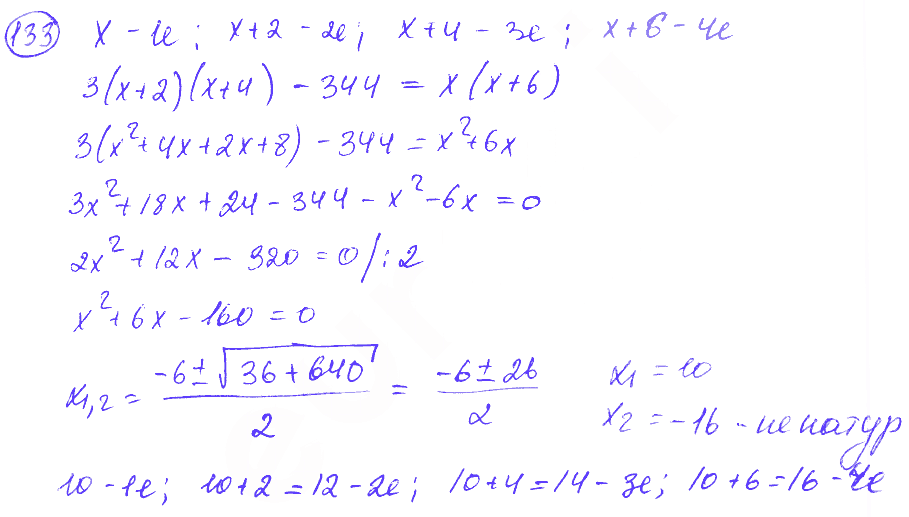 133 x - 1е; x+2 - 2е; x+4 - 3е; x+6 - 4е
3(x+2)(x+4) - 344 = x(x+6)
3(x²+4x+2x+8) - 344 = x²+6x
3x²+18x+24-344-x²-6x=0
2x²+12x-320=0/:2
x²+6x-160=0
x1,2 = (-6±√(36+640))/2 = (-6±26)/2 x1=10
x2=-16 - не натур
10-1е; 10+2=12-2е; 10+4=14-3е; 10+6=16-4е